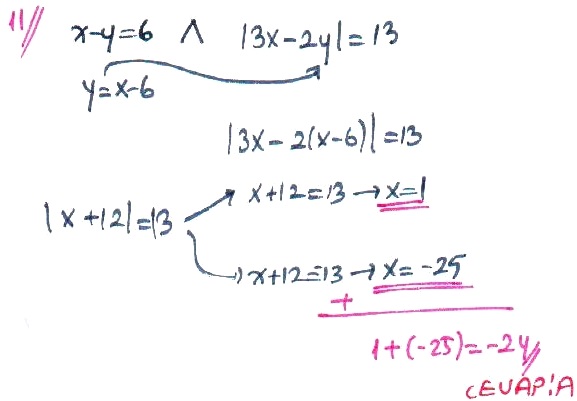 11// x-y=6 ∧ |3x-2y|=13
y=x-6
|3x-2(x-6)|=13
x+12=13→x=1
|x+12|=13
x+12=13→x=-25
+
1+(-25)=-24//
CEVAP:A